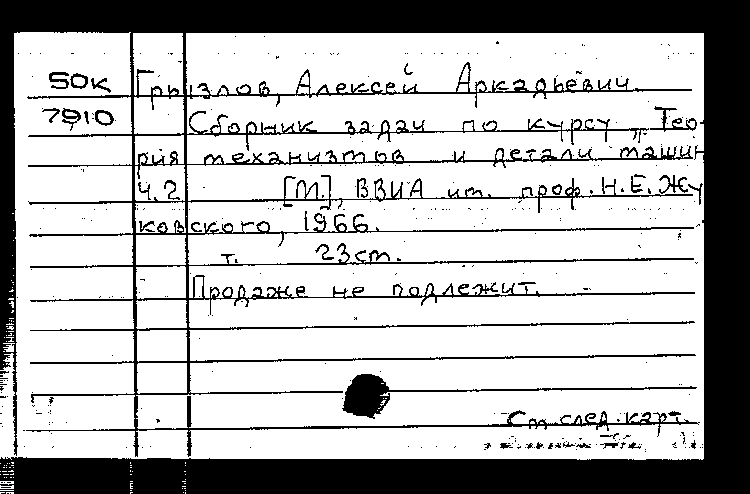 50К Грызлов, Алексей Аркадьевич.
7910 Сборник задач по курсу „Тео-
рия механизмов и детали машин
ч.2 [М.], ВВИА им. проф. Н.Е.Жу
ковского, 1966.
т. 23ст.
Продаже не подлежит.
См.след.карт.